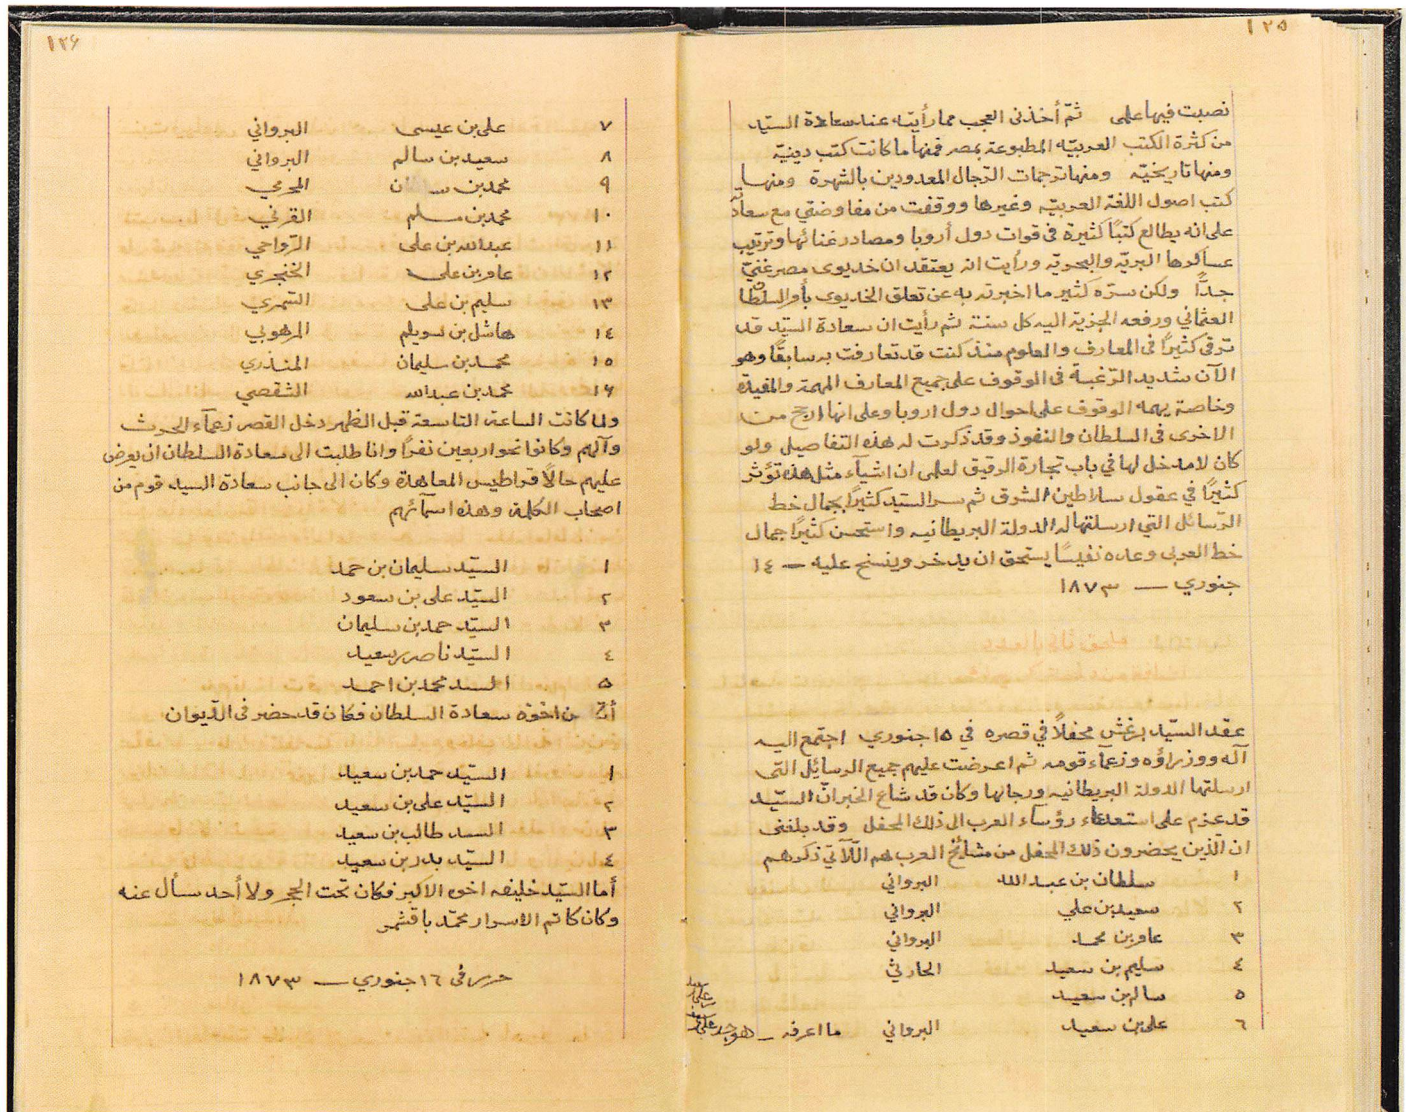 ١٢٥
نصبت فيها على ثمّ أخذني العجب مما رأيته عند سعادة السيّد
من كثرة الكتب العربيّه المطبوعة بمصر فمنها ما كانت كتب دينيّة
ومنها تاريخيّه ومنها ترجمات الرّجال المعدودين بالشهرة ومنها
كتب اصول اللغة العربيّه وغيرها ووقفت من مفاوضتي مع سعادته
على انه يطالع كتبًا كثيرة في قوات دول أروبا ومصادر غنائها وترتيب
عساكرها البريّه والبحريّه ورأيت انه يعتقد ان خديوى مصر غنيّ
جدًّا ولكن سرّه كثير ما اخبرته به عن تعلق الخديوى بأمر السلطان
العثماني ورفعه الجزية اليه كل سنة ثم رأيت ان سعادة السيّد قد
ترقى كثيرًا في المعارف والعلوم منذ كنت قد تعارفت به سابقًا وهو
الآن شديد الرّغبة في الوقوف على جميع المعارف المهمة والمفيدة
وخاصة يهمه الوقوف على احوال دول اروبا وعلى انها ارجح من
الاخرى في السلطان والنفوذ وقد ذكرت له هذه التفاصيل ولو
كان لا مدخل لها في باب تجارة الرقيق لعلمى ان اشيآء مثل هذه تؤثر
كثيرًا في عقول سلاطين الشرق ثم سر السيّد كثيرًا بجمال خط
الرّسائل التي ارسلتها له الدولة البريطانيه واستحسن كثيرًا جمال
خط العربى وعده نفيسًا يستحق ان يدخر وينسخ عليه – ١٤
جنوري – ١٨٧٣
عقد السيّد برغش محفلاً في قصره في ١٥ جنوري اجتمع اليه
آله ووزراؤه وزعماء قومه ثم اعرضت عليهم جميع الرسائل التى
ارسلتها الدولة البريطانيه ورجالها وكان قد شاع الخبر انّ السيّد
قد عزم على استعدعاء رؤساء العرب الى ذلك المحفل وقد بلغنى
ان الّذين يحضرون ذلك المحفل من مشائخ العرب هم اللّاتي ذكرهم
١ سلطان بن عبد الله البرواني
٢ سعيد بن علي البرواني
٣ عامر بن محمد البرواني
٤ سليم بن سعيد الحارثي
٥ سالم بن سعيد
٦ على بن سعيد البرواني ما اعرفه – هو جد
١٢٦
٧ على بن عيسى البرواني
٨ سعيد بن سالم البرواني
٩ محمد بن المحرمي
١٠ محمد بن مسلم القرني
١١ عبد الله بن على الرّواحي
١٢ عامر بن على الخنجري
١٣ سليم بن على السّمري
١٤ هاشل بن سويلم المرهوبي
١٥ محمد بن سليمان المنذري
١٦ محمد بن عبد الله الشقصي
ولما كانت الساعة التاسعة قبل الظهر دخل القصر زعمآء الحرث
وآلهم وكانوا نحو اربعين نفرًا وانا طلبت الى سعادة السلطان ان يعرض
عليهم حالاً قراطيس المعاهدة وكان الى جانب سعادة السيد قوم من
اصحاب الكلمة وهذه اسمآئهم
١ السيّد سليمان بن حمد
٢ السيّد على بن سعود
٣ السيّد حمد بن سليمان
٤ السيّد ناصر بن سعيد
٥ السيد محمد بن احمد
أمّا من اخوة سعادة السلطان فكان قد حضر فى الدّيوان
١ السيّد حمد بن سعيد
٢ السيّد على بن سعيد
٣ السيد طالب بن سعيد
٤ السيّد بدر بن سعيد
أما السيّد خليفه اخوه الاكبر فكان تحت الحجر ولا أحد سأل عنه
وكان كاتم الاسرار محمّد باقشمر
حرر فى ١٦ جنوري – ١٨٧٣